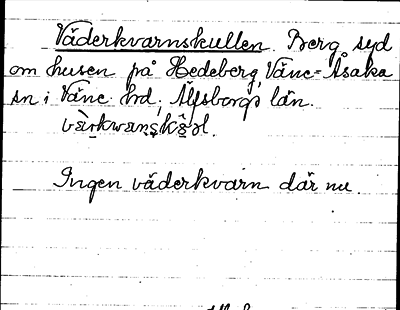 Väderkvarnskullen. Berg syd
om husen på Hedeberg, Väne-Åsaka
sn i Väne hd, Älfsborgs län.

Ingen väderkvarn där nu.